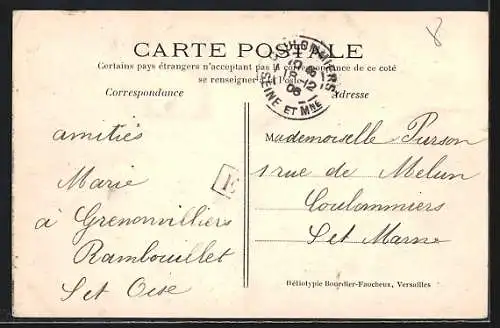 8
CARTE POSTALE
Certains pays étrangers n'acceptant pas la correspondance de ce coté
se renseigner à la Poste
Correspondance
Adresse
COULOMMIERS
SEINE ET Mne
amitiés
Marie
à Grenonvilliers
Rambouillet
S et Oise
Mademoiselle Purson
1 rue de Melun
Coulommiers
S et Marne
Héliotypie Bourdier-Faucheux, Versailles